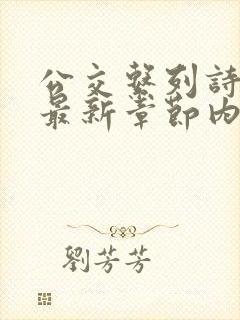 公交系列詩
最新章節內
劉芳芳